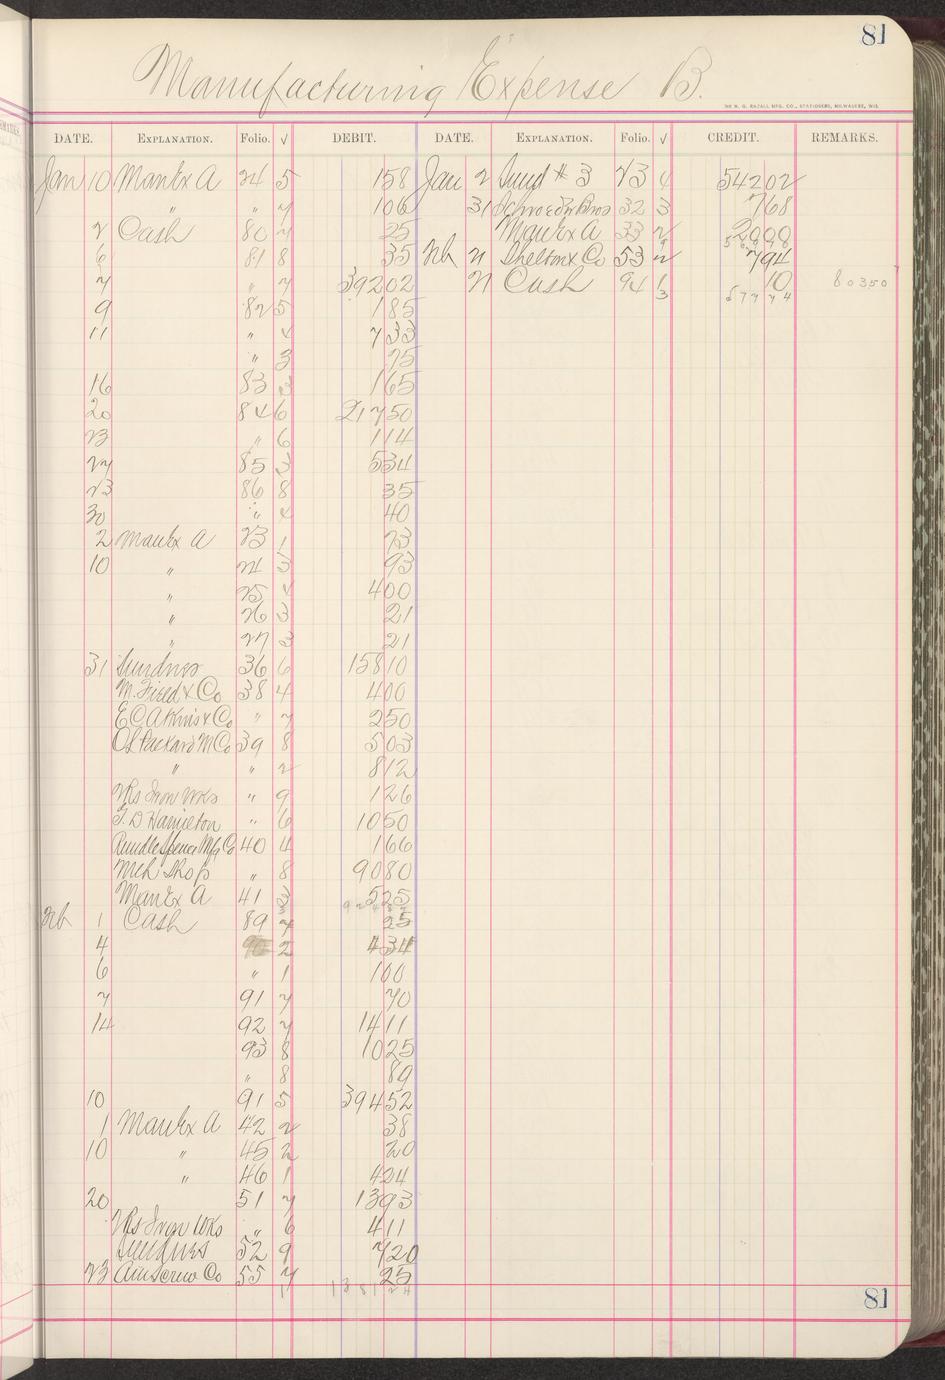 81
Manufacturing Expense B.
THE H. G. RAZALL MFG. CO., STATIONERS, MILWAUKEE, WIS.
DATE. EXPLANATION. Folio. √ DEBIT. DATE. EXPLANATION. Folio. √ CREDIT. REMARKS.
Jan 10 Man Ex A 24 5 158 Jan 2 Sund # 3 23 4 54202
" " 7 106 31 Schroeder Bros 32 3 768
2 Cash 80 7 25 Man Ex A 33 2 2000
6 81 8 35 Feb 21 Shelton & Co 53 2 794
7 " 7 39202 21 Cash 94 1 10 80350
9 82 5 185
11 " 4 733
" 3 75
16 83 3 165
20 84 6 21750
23 " 6 114
27 85 3 534
23 86 8 35
30 " 4 40
2 Man Ex A 23 1 73
10 " 24 5 93
" 25 4 400
" 26 3 21
" 27 3 21
31 Sundries 36 6 15810
M. Field & Co 38 4 400
E C Atkins & Co " 7 250
O L Packard M Co 39 8 503
" " 2 812
Mrs Iron Wks " 9 126
T. D Hamilton " 6 1050
Rundle Spence Mfg Co 40 4 166
Mch Shop " 8 9080
Man Ex A 41 3 525
Feb 1 Cash 89 7 25
4 90 2 434
6 " 1 100
7 91 7 70
14 92 7 1411
93 8 1025
" 8 89
10 91 5 39452
1 Man Ex A 42 2 38
10 " 45 2 20
" 46 1 424
20 51 7 1393
Mrs Iron Wks " 6 411
Sundries 52 9 720
23 Am Screw Co 55 7 25
1 138124
81